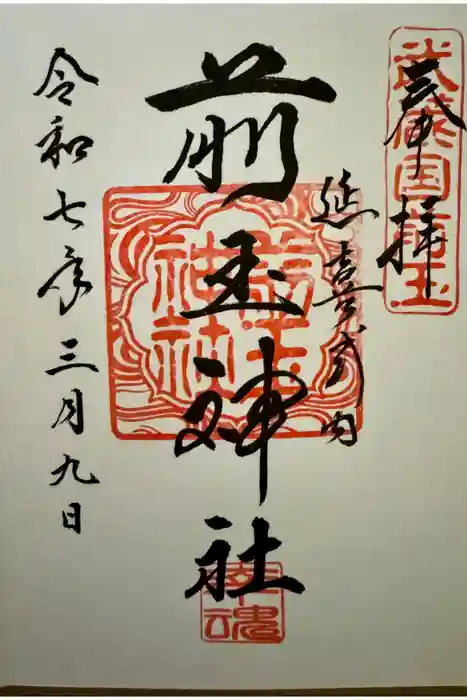 奉拝
武蔵国埼玉
延喜式内
前玉神社
前玉神社
幸魂
令和七年三月九日